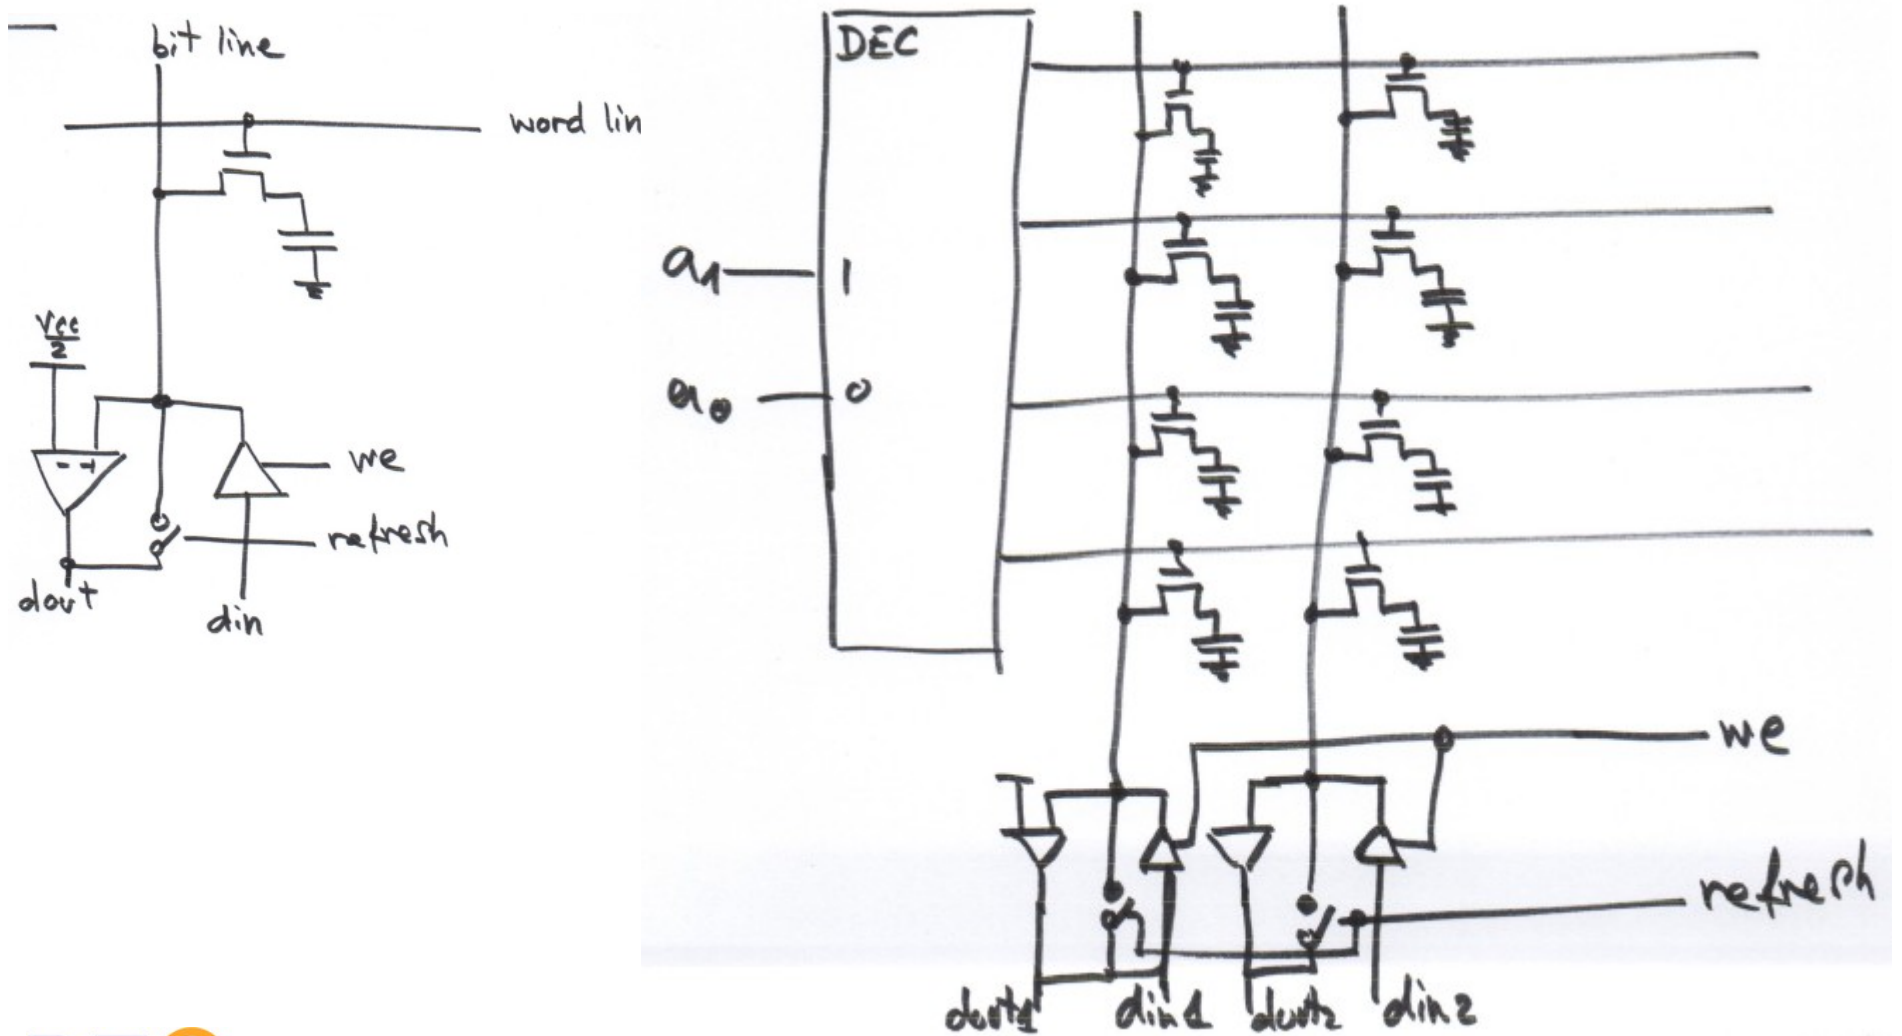 bit line
word lin
Vcc
2
- +
we
refresh
dout
din
DEC
a1
1
a0
0
we
refresh
dout1
din1
dout2
din2